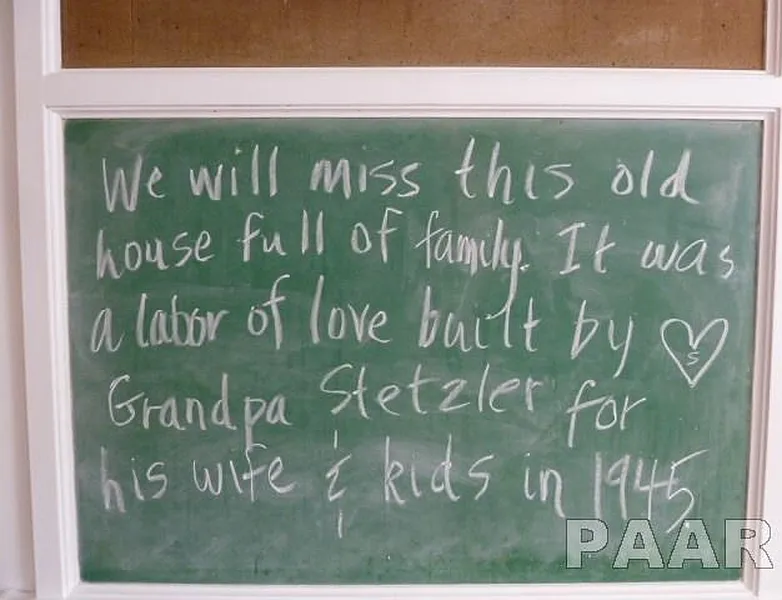 We will miss this old
house full of family. It was
a labor of love built by
S
Grandpa Stetzler for
his wife & kids in 1945
PAAR